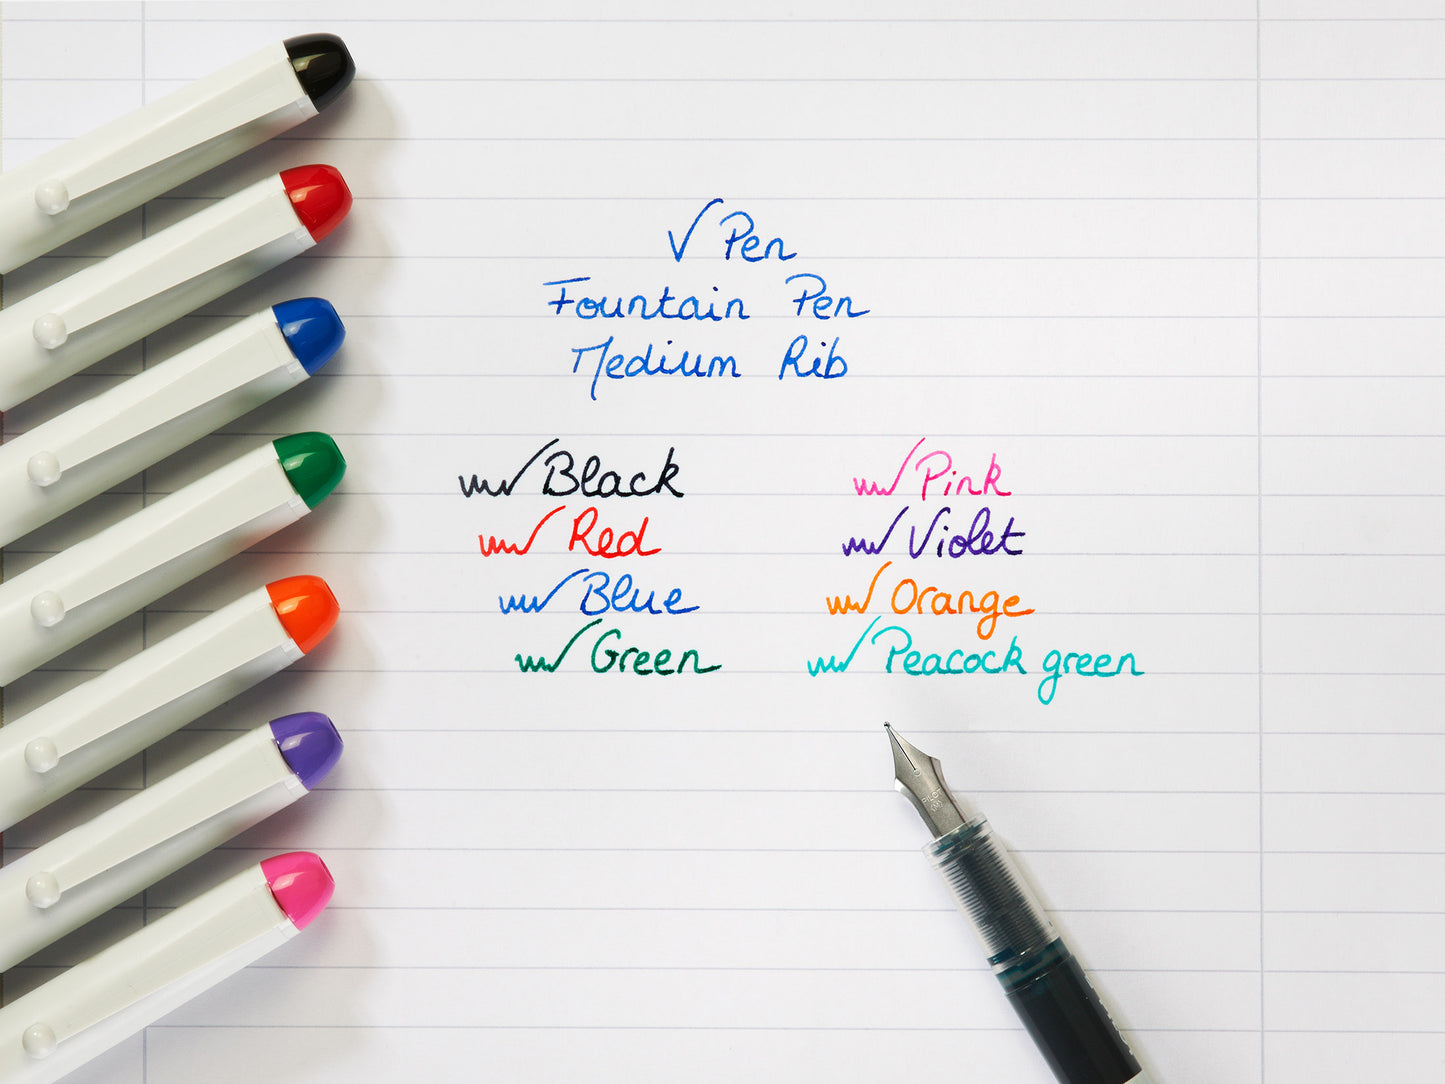 V Pen
Fountain Pen
Medium Rib
Black
Red
Blue
Green
Pink
Violet
Orange
Peacock green
PILOT